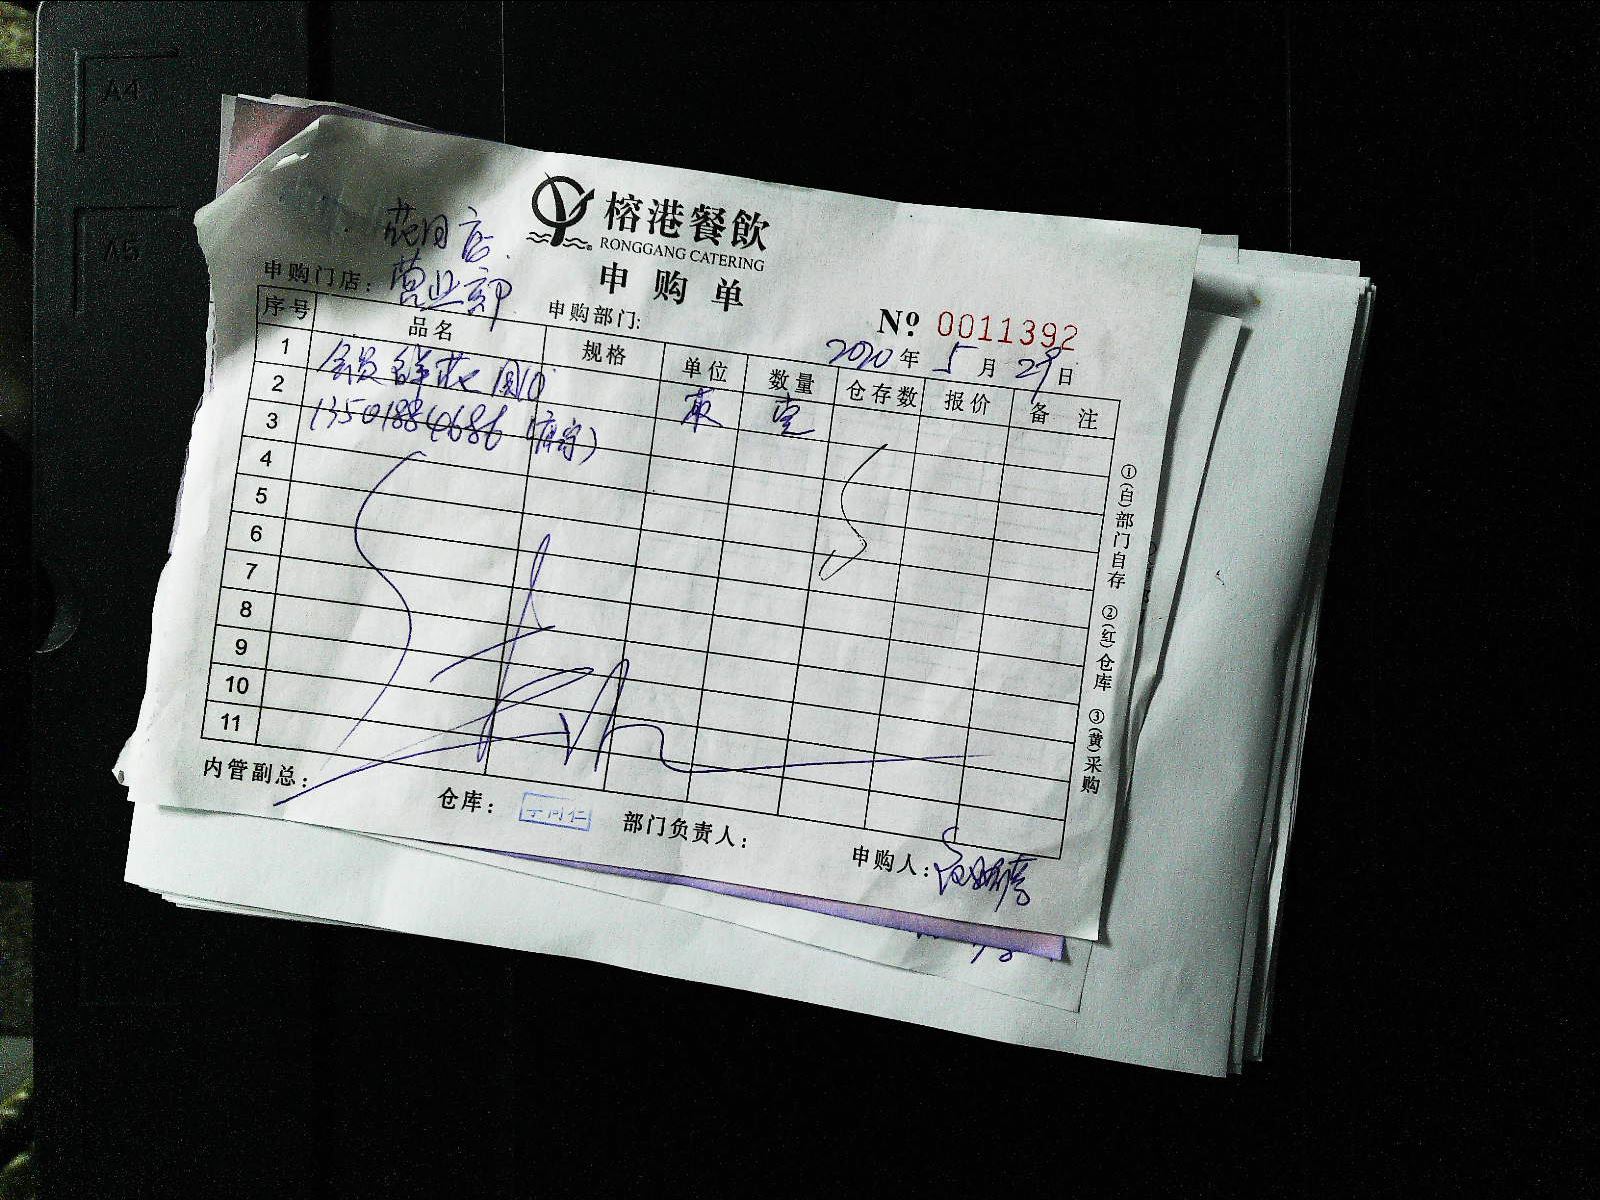 A4
A5
榕港餐飲
RONGGANG CATERING
申购单
花园店
申购门店：营业部
申购部门:
Nº 0011392
2020年5月29日
序号 品名 规格 单位 数量 仓存数 报价 备注
1 会员鲜花
2 13501884686
3
4
5
6
7
8
9
10
11
①(白)部门自存 ②(红)仓库 ③(黄)采购
内管副总： 仓库： 部门负责人： 申购人：